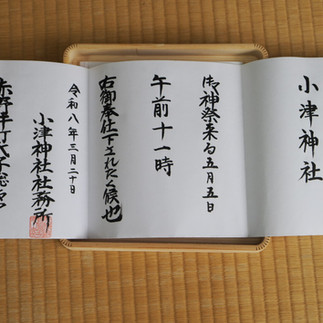 小津神社
御神祭来る五月五日
午前十一時
右御奉仕下されたく候也
令和八年三月二十日
小津神社社務所
赤野井町氏子総